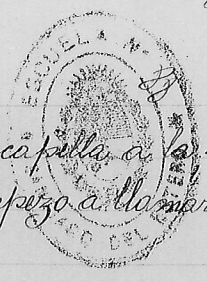 ESCUELA Nº
capilla a la
pezo a llamar
DEL ESTERO